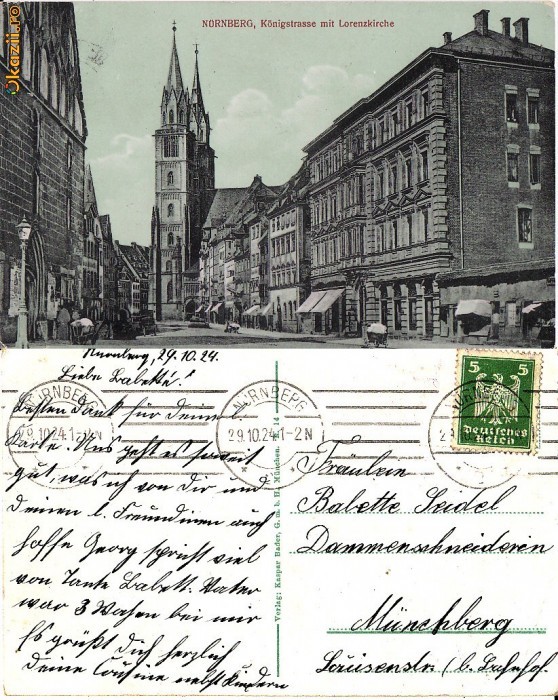 Okazii.ro
NÜRNBERG, Königstrasse mit Lorenzkirche
Nürnberg, 29.10.24.
Liebe Babette!
Besten Dank für Deine l.
Karte. Uns geht es soweit
gut, was ich von Dir und
Deinen l. Freundinen auch
hoffe Georg spricht viel
von Tante Babett. Vater
war 3 Wochen bei mir
Es grüßt Dich herzlich
Deine Cousine nebst Kindern
NÜRNBERG
29.10.24.1-2N
NÜRNBERG
29.10.24.1-2N
14
Verlag: Kaspar Bader, G. m. b. H. München.
5 5
Deutsches
Reich
Fräulein
Babette Seidel
Dammenschneiderin
Münchberg
Luisenstr. / b. Bahnhof.